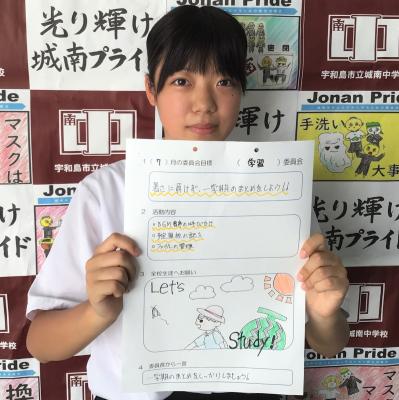 光り輝け
城南プライド
Jonan Pride
宇和島市立城南中学校
Jonan Pride
手洗い
大事
マスクは
光り輝け
城南プライド
宇和島市立城南中学校
Jonan Pride
換
1 ( 7 ) 月の委員会目標 ( 学習 ) 委員会
暑さに負けず、一学期のまとめをしよう!!
2 活動内容
3 全校生徒へお願い
Let's
Study!
4 委員長から一言
一学期のまとめをしっかりしましょう!!